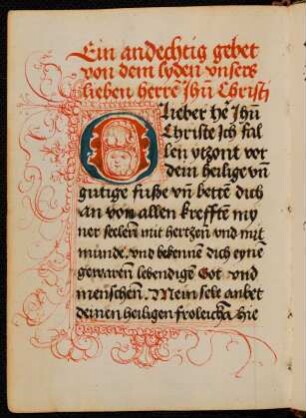 Ein andechtig gebet
von dem lyden vnsers
lieben herrē Jhū Christi
O lieber hē Jhū
Christe Jch fal
len ytzont vor
dem heilige vn̄
gutige fuße vn̄ bettē dich
an von allen krefftē my
ner seelen mit hertzen vnd mit
munde. vnd bekenne dich eynē
gewaren lebendigē Got vnd
menschen. Mein sele anbet
deinen heiligen froleichā hie